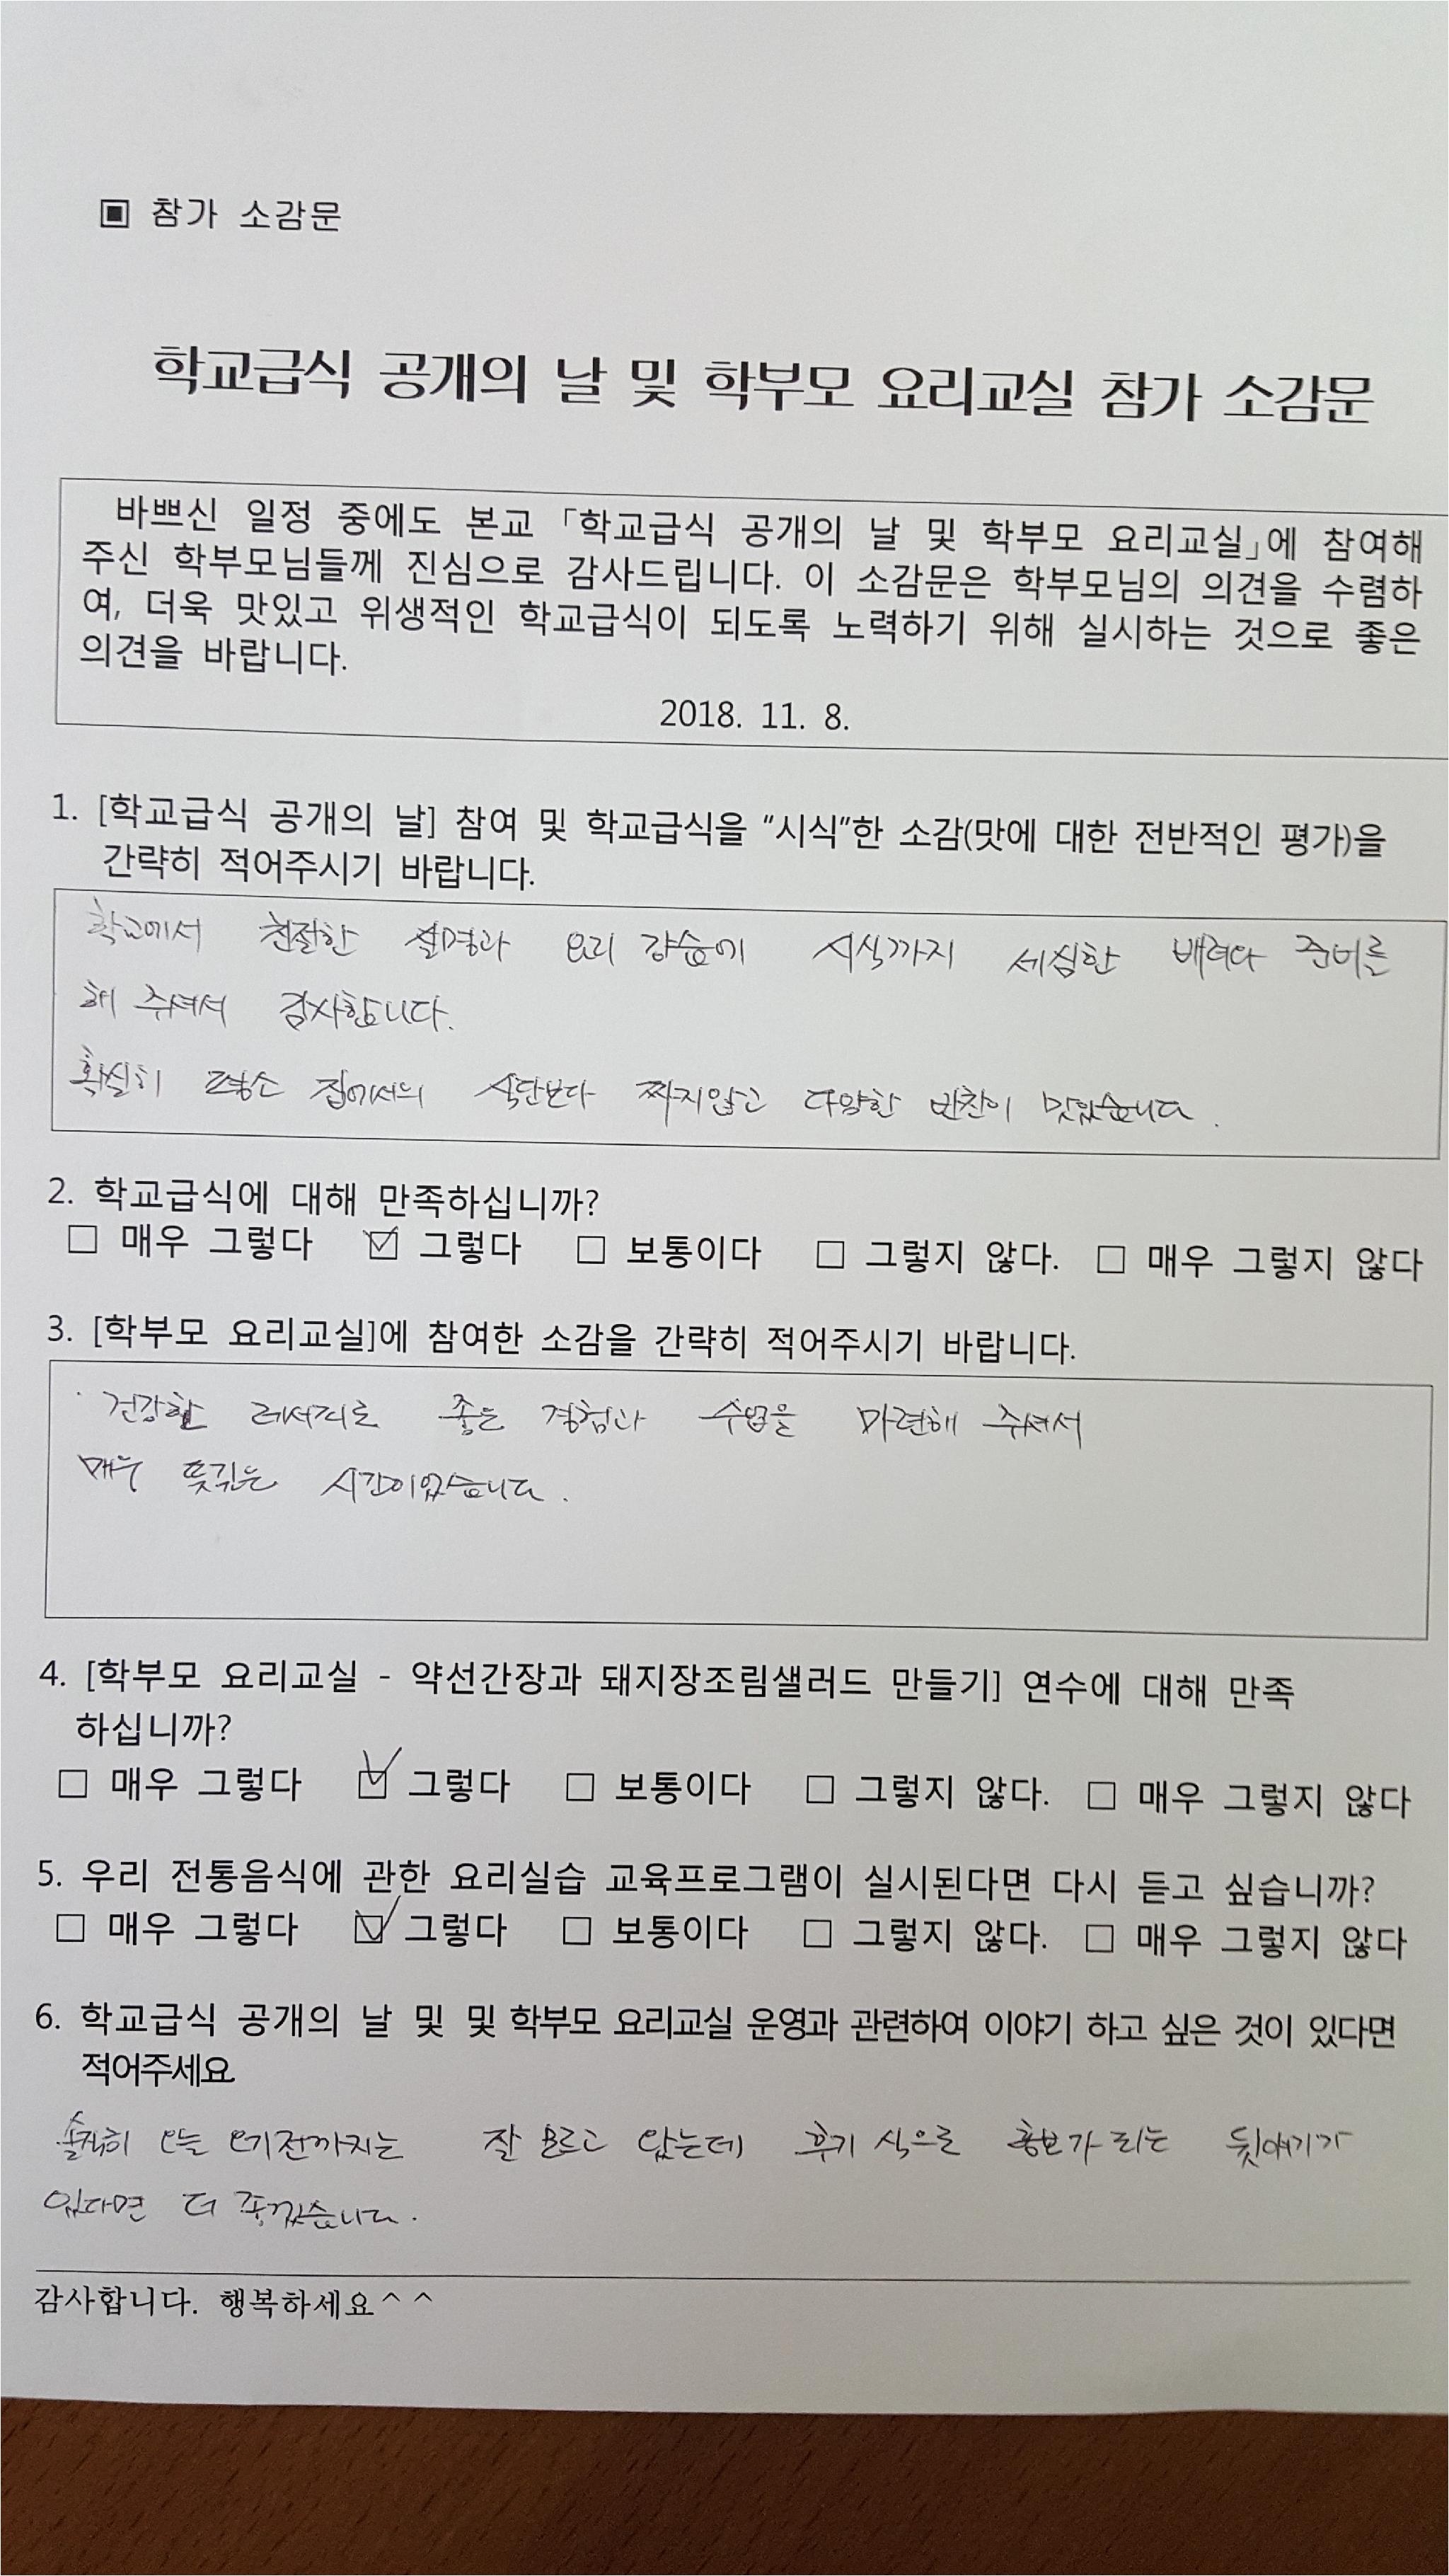 ▣ 참가 소감문
학교급식 공개의 날 및 학부모 요리교실 참가 소감문
바쁘신 일정 중에도 본교 「학교급식 공개의 날 및 학부모 요리교실」에 참여해
주신 학부모님들께 진심으로 감사드립니다. 이 소감문은 학부모님의 의견을 수렴하
여, 더욱 맛있고 위생적인 학교급식이 되도록 노력하기 위해 실시하는 것으로 좋은
의견을 바랍니다.
2018. 11. 8.
1. [학교급식 공개의 날] 참여 및 학교급식을 "시식"한 소감(맛에 대한 전반적인 평가)을
간략히 적어주시기 바랍니다.
학교에서 친절한 설명과 요리 강습에 시식까지 세심한 배려와 준비를
해 주셔서 감사합니다.
확실히 평소 집에서의 식단보다 짜지않고 다양한 반찬이 맛있습니다.
2. 학교급식에 대해 만족하십니까?
□ 매우 그렇다 ☑ 그렇다 □ 보통이다 □ 그렇지 않다. □ 매우 그렇지 않다
3. [학부모 요리교실]에 참여한 소감을 간략히 적어주시기 바랍니다.
건강한 레서피로 좋은 경험과 수업을 마련해 주셔서
매우 뜻깊은 시간이었습니다.
4. [학부모 요리교실 - 약선간장과 돼지장조림샐러드 만들기] 연수에 대해 만족
하십니까?
□ 매우 그렇다 ☑ 그렇다 □ 보통이다 □ 그렇지 않다. □ 매우 그렇지 않다
5. 우리 전통음식에 관한 요리실습 교육프로그램이 실시된다면 다시 듣고 싶습니까?
□ 매우 그렇다 ☑ 그렇다 □ 보통이다 □ 그렇지 않다. □ 매우 그렇지 않다
6. 학교급식 공개의 날 및 및 학부모 요리교실 운영과 관련하여 이야기 하고 싶은 것이 있다면
적어주세요.
솔직히 오늘 오기전까지는 잘 모르고 왔는데 후기 식으로 홍보가 되는 뒷얘기가
있다면 더 좋겠습니다.
감사합니다. 행복하세요^^